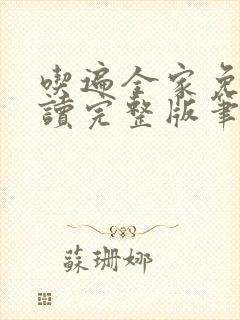 喫遍全家免
讀完整版筆
蘇珊娜